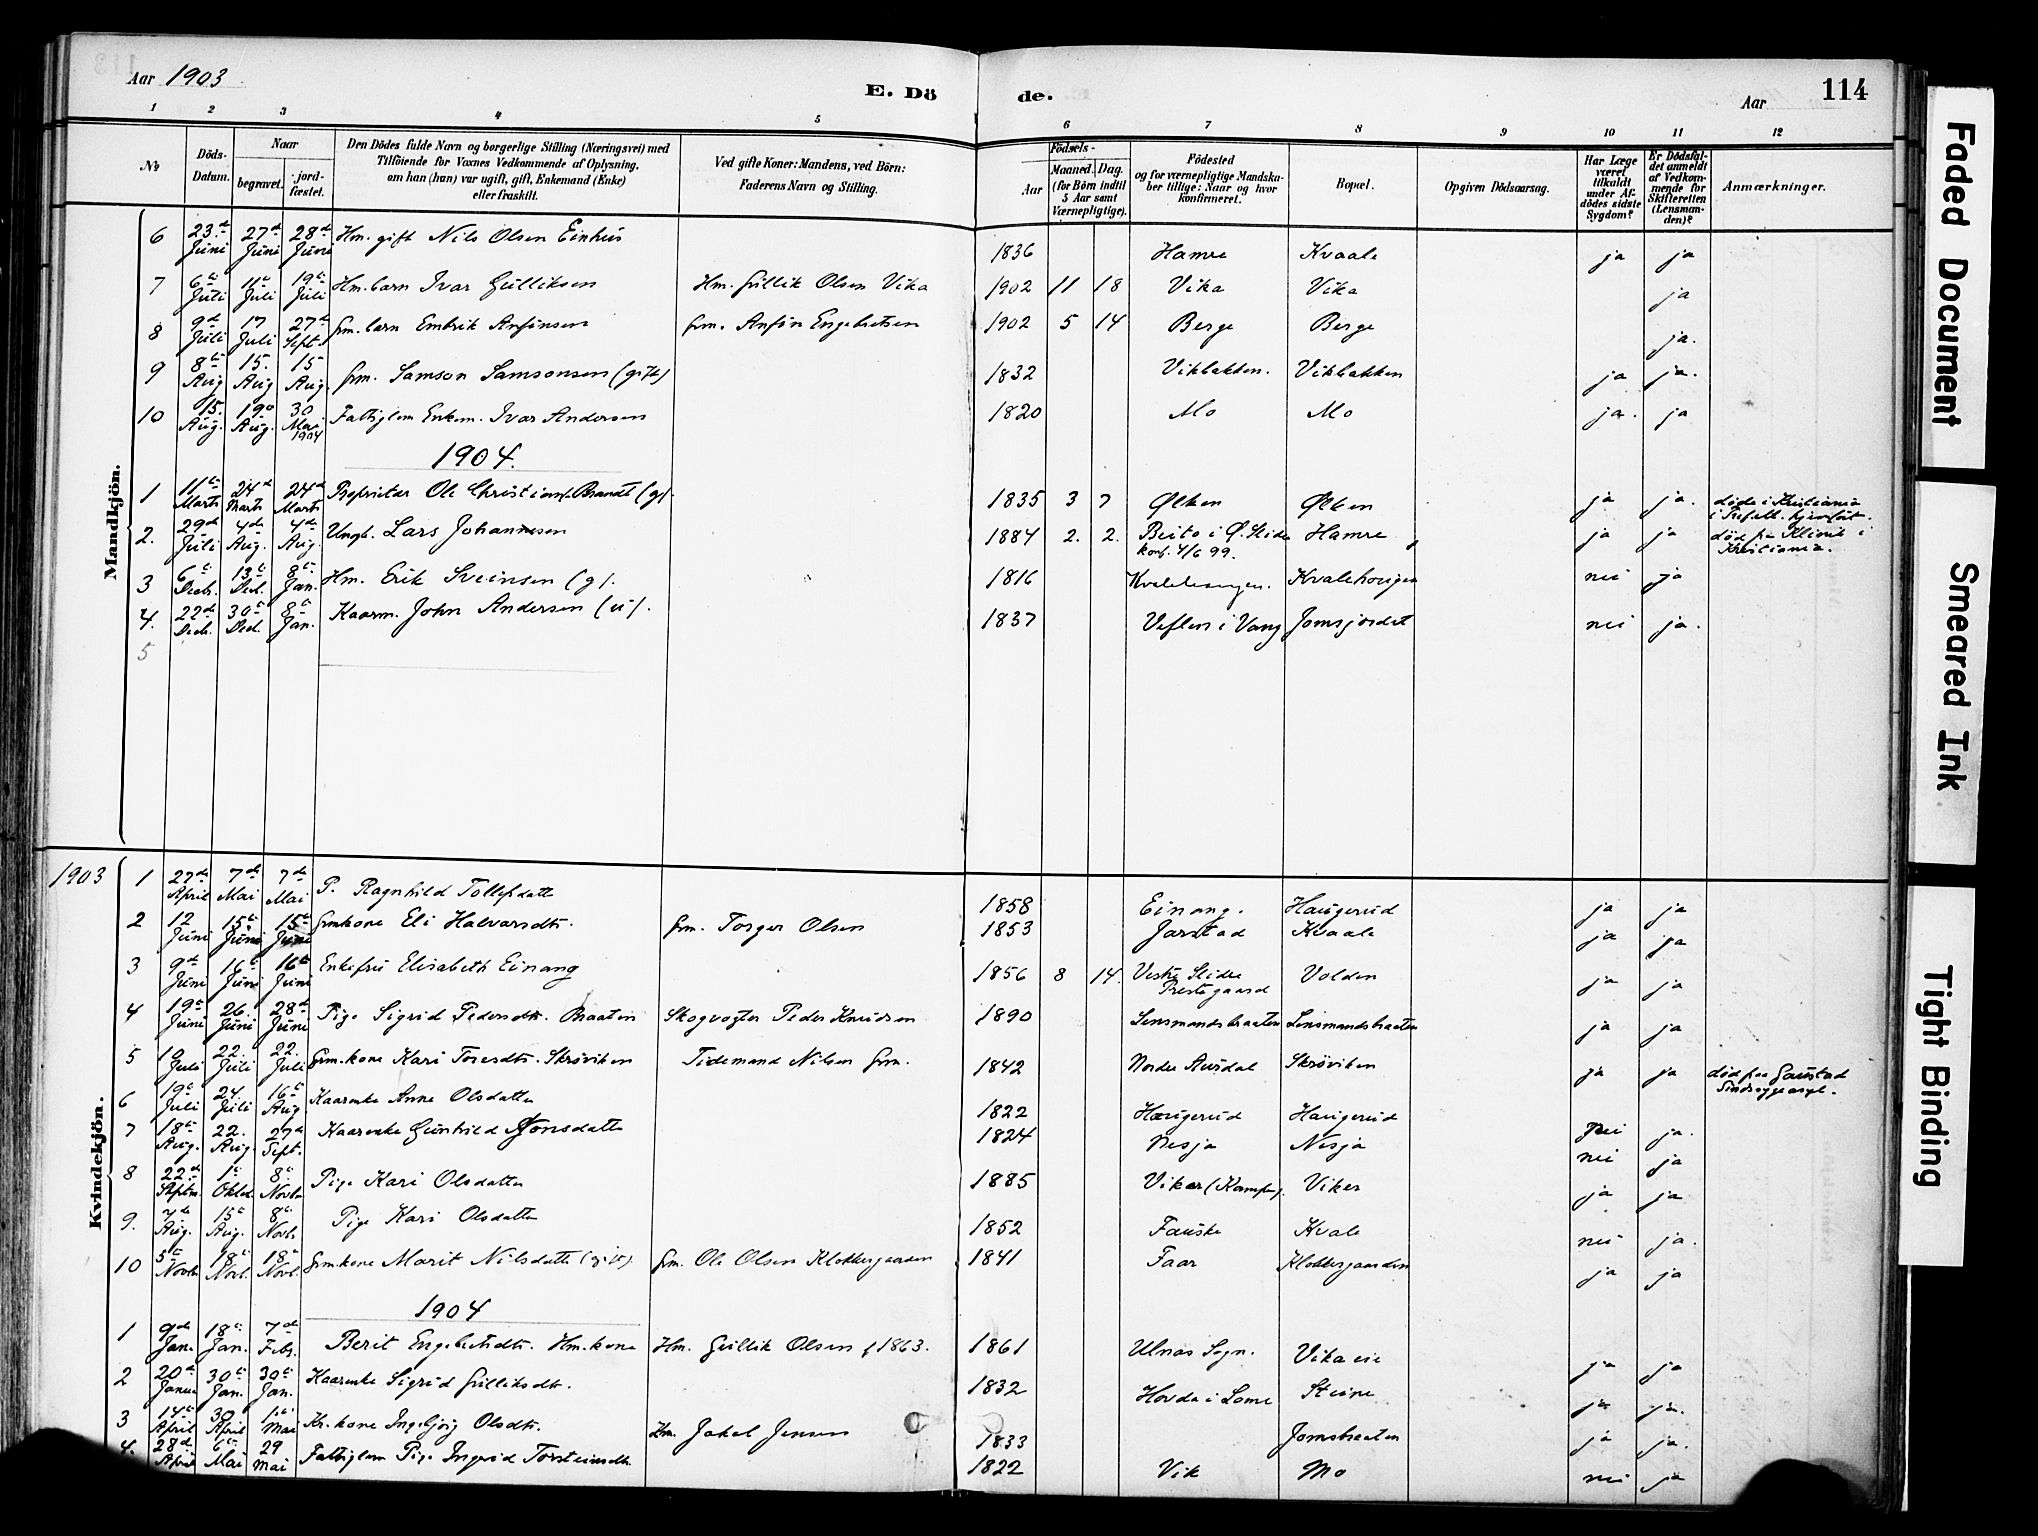 Aar 1903
E. Döde.
Aar
114
1 2 3 4 5 6 7 8 9 10 11 12
No
Döds-Datum.
Naar
begravet.
jord-fæstet.
Den Dödes fulde Navn og borgerlige Stilling (Næringsvei) med
Tilföiende for Voxnes Vedkommende af Oplysning,
om han (hun) var ugift, gift, Enkemand (Enke)
eller fraskilt.
Ved gifte Koner: Mandens, ved Börn:
Faderens Navn og Stilling.
Födsels-
Aar
Maaned. Dag.
(for Börn indtil
5 Aar samt
Værnepligtige).
Födested
og for værnepligtige Mandska-
ber tillige: Naar og hvor
konfirmeret.
Bopæl.
Opgiven Dödsaarsag.
Har Læge
været
tilkaldt
under Af-
dödes sidste
Sygdom?
Er Dödsfal-
det anmeldt
af Vedkom-
mende for
Skifteretten
(Lensman-
den)?
Anmærkninger.
Mandkjön.
6 23de Juni 27de Juni 28de Juni Hm. gift Nils Olsen Einhus 1836 Hamre Kvaale ja ja
7 6te Juli 11te Juli 19te Juli Hm. barn Ivar Gulliksen Hm. Gullik Olsen Vika 1902 11 18 Vika Vika ja
8 9de Juli 17 Juli 27de Sept. Grm. barn Embrik Anfinsen Grm. Anfin Engebretsen 1902 5 14 Berge Berge ja.
9 8te Aug 15. Aug 15 Aug. Grm. Samson Samsonsen (gift) 1832 Vikbakken. Vikbakken ja ja.
10 15. Aug. 19de Aug. 30 Mai 1904 Fattiglem Enkem. Ivar Andersen 1820 Mo Mo ja. ja
1904.
1 11te Marts 24de Marts 24de Marts Proprietær Ole Christians. Brandt (g). 1835 3 7 Ølken Ølken ja ja. døde i Kristiania
2. 29de Juli 4de Aug. 4de Aug. Ungk. Lars Johannesen 1884 2. 2. Beito i Ø. Slidre konf. 4/6 99. Hamre ja ja død paa Klinik i Kristiania.
3 6te Decb. 13te Dec. 8te Jan. Hm. Erik Sveinsen (g). 1816 Kvalehougen nei ja
4. 22de Decb. 30te Dec. 8de Jan. Kaarm. John Andersen (u). 1837 i Vang Jomsjordet nei ja.
5
Kvindekjön.
1903 1 27de April 7de Mai 7de Mai P. Ragnhild Tollefsdatter 1858 Einang. Haugerud ja ja
2 12 Juni 15te Juni 15te Juni Grmkone Eli Halvorsdtr. Grm. Torger Olsen 1853 Jarstad Kvaale ja ja
3 9de Juni 16te Juni 16te Juni Enkefru Elisabeth Einang 1856 8 14. Vestre Slidre Prestegaard Volden ja ja
4 19de Juni 26. Juni 28de Juni Pige Sigrid Pedersdtr. Braaten Skogvogter Peder Knudsen 1890 Lensmandsbraaten Lensmandsbraaten ja ja
5 19 Juli 22. Juli 22. Juli Grm. kone Kari Toresdtr. Skrøviken Tidemand Nilsen Grm. 1842 Nordre Aurdal Skrøviken ja ja død paa Gaustad Sindssygeasyl.
6 19de Juli 24. Juli 16te Aug Kaarenke Anne Olsdatter 1822 Haugerud Haugerud nei ja.
7 18te Aug. 22. Aug. 27de Sept. Kaarenke Gunhild Jonsdatter 1824 Nesja Nesja nei ja
8 22de Septbr. 1te Oktob. 8te Novb. Pige Kari Olsdatter 1885 Viker (Kampen). Viker ja ja.
9. 7de Aug. 15te Aug. 8te Novb. Pige Kari Olsdatter 1852 Fauske Kvale nei ja.
10 5te Novb. 18te Novb. 18te Novb. Grm. kone Marit Nilsdatter (gift). Grm. Ole Olsen Klokkergaarden 1841 Faar Klokkergaarden ja ja
1904
1 9de Jan. 18te Jan. 7de Feb. Berit Engebretsdtr. Hm. kone Hm. Gullik Olsen f 1863. 1861 Ulnæs Sogn. Vika eie ja ja
2 20de Januar 30te Jan. 30te Jan. Kaarenke Sigrid Gulliksdtr. 1832 Hovde i Lome Steine ja ja.
3 14te April 30 April 1te Mai Kr. kone Ingebjørg Olsdtr. Jakob Jensen 1833 Jomsbraaten ja ja.
4. 28de April 6te Mai 29 Mai Fattiglem Pige Ingrid Torsteinsdtr. 1822 Vik Mo nei ja
Faded Document
Smeared Ink
Tight Binding